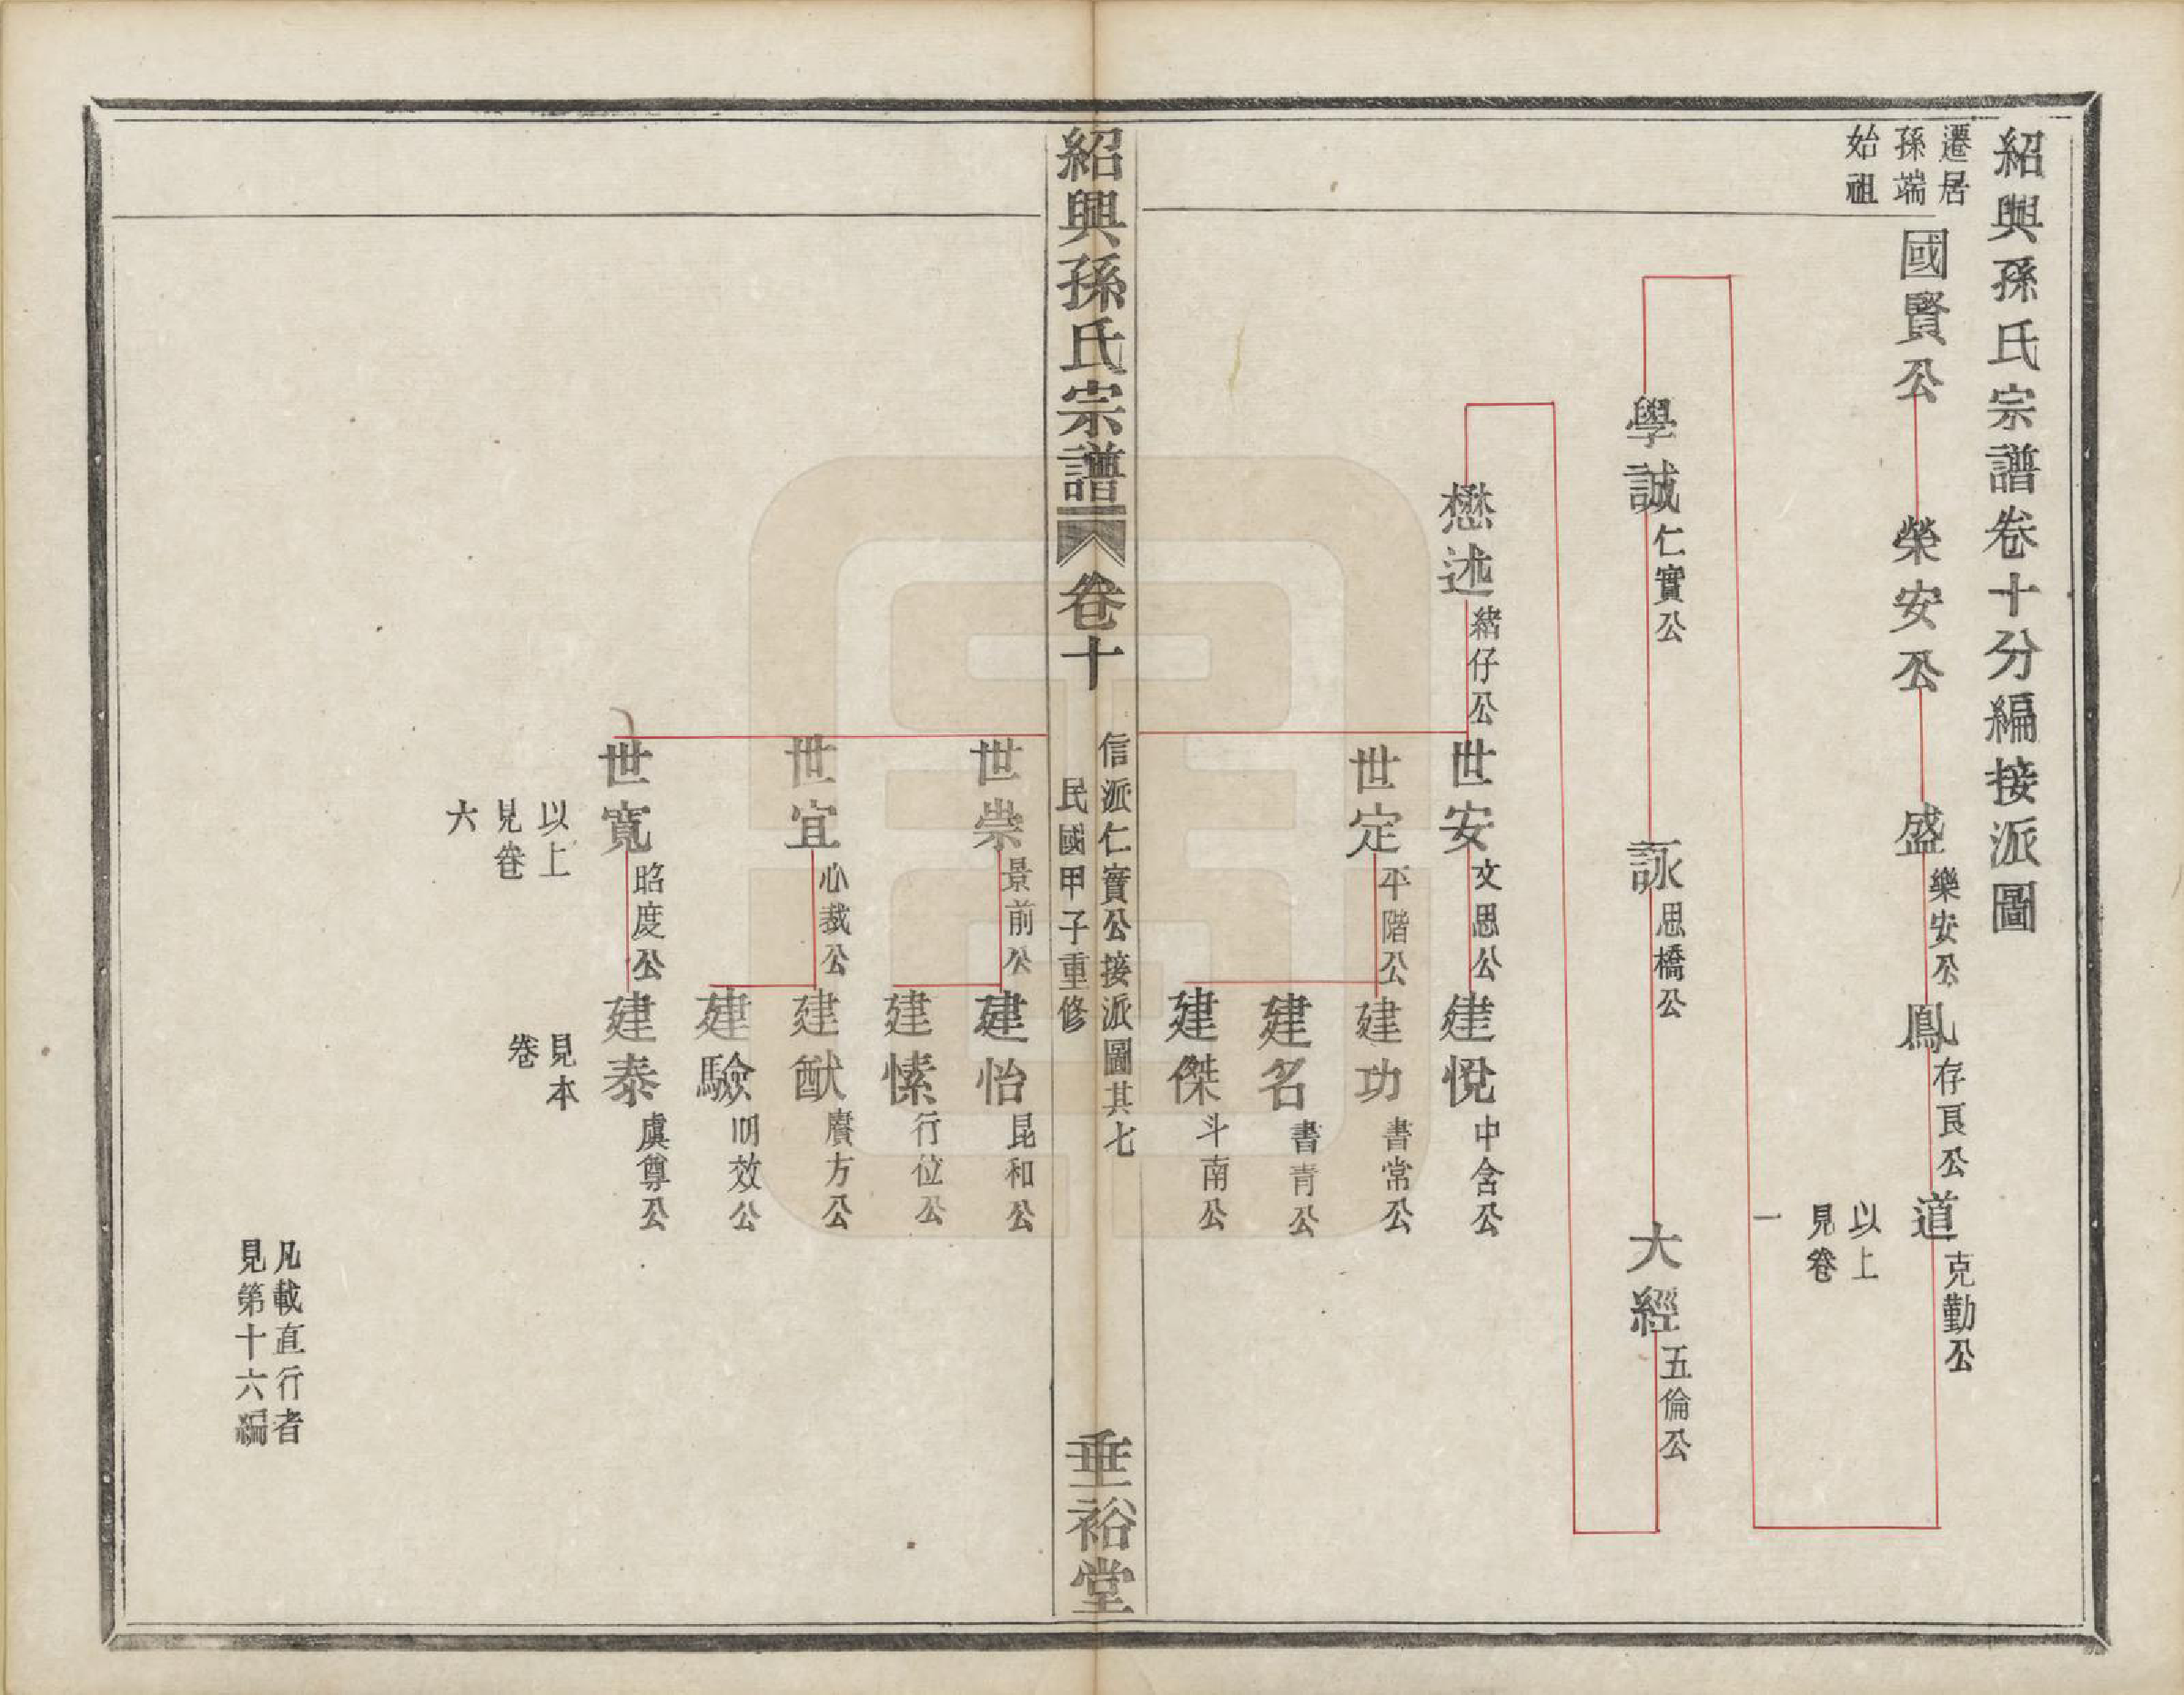 紹興孫氏宗譜卷十分編接派圖
遷居
孫端
始祖
國賢公
榮安公
盛樂安公
鳳存良公
道克勤公
以上
見卷
一
學誠仁實公
詠思橋公
大經五倫公
懋述緒仔公
世安文思公
建悅中含公
世定平階公
建功書常公
建名書青公
建傑斗南公
紹興孫氏宗譜
卷十
信派仁實公接派圖其七
民國甲子重修
垂裕堂
世崇景前公
建怡昆和公
建愫行位公
世宜心裁公
建猷賡方公
建驗明效公
世寬昭度公
建泰虞尊公
以上
見卷
六
見本
卷
凡載直行者
見第十六編